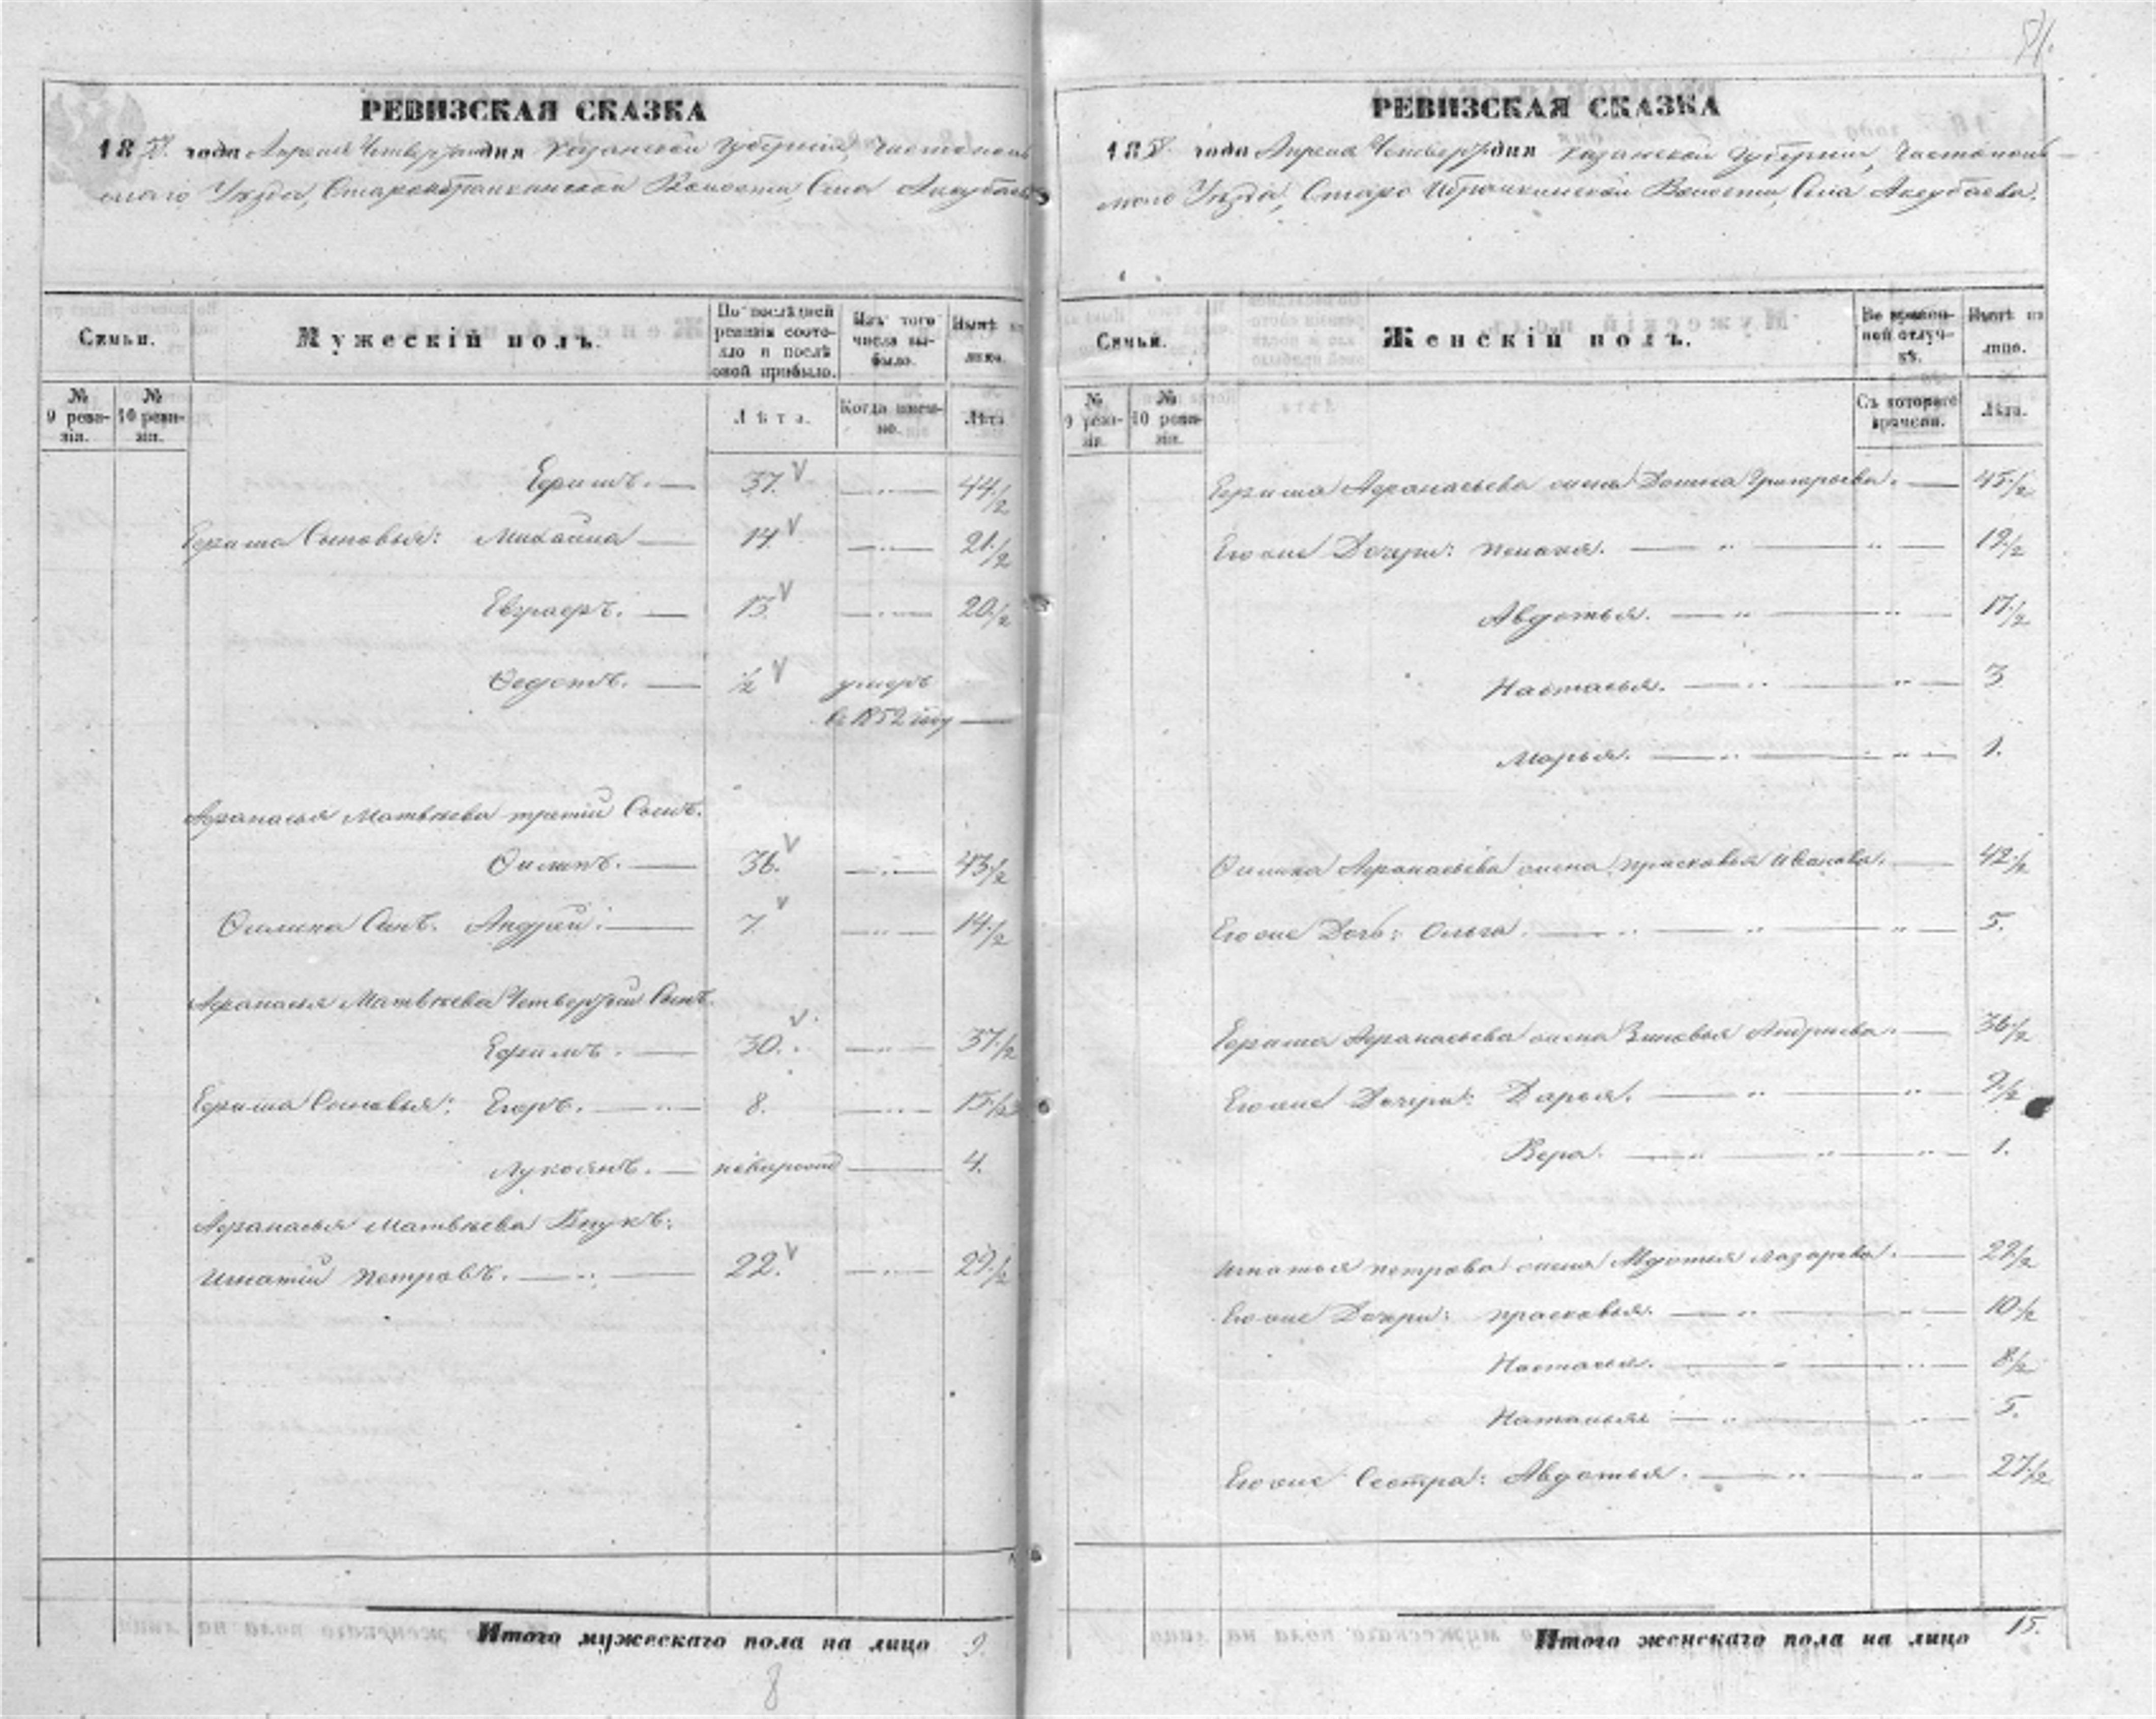 81.
РЕВИЗСКАЯ СКАЗКА
1858 года Апреля Четвертаго дня Казанской Губерніи, Чистополь
скаго Уѣзда, Староибрайкинской Волости, Села Акзубаева
Семьи.
Мужескій полъ.
По послѣдней ревизіи состояло и послѣ оной прибыло.
Изъ того числа выбыло.
Нынѣ на лицо.
№ 9 ревизіи.
№ 10 ревизіи.
Лѣта.
Когда именно.
Лѣта
Ефимъ. 37. 44 1/2
Ефима Сыновья: Михайла 14 21 1/2
Евграфъ. 13. 20 1/2
Ѳедотъ. 1/2 умеръ
въ 1852 году
Афанасья Матвѣева третій Сынъ.
Филипъ. 36. 43 1/2
Филипа Сынъ. Андрей: 7. 14 1/2
Афанасья Матвѣева Четвертый Сынъ.
Ефимъ. 30. 37 1/2
Ефима Сыновья: Егоръ. 8. 15 1/2
Лукоянъ. новорож 4.
Афанасья Матвѣева Внукъ:
Игнатій Петровъ. 22. 29 1/2
Итого мужескаго пола на лицо 9.
8
РЕВИЗСКАЯ СКАЗКА
1858 года Апреля Четверт дня Казанской Губерніи, Чистополь
скаго Уѣзда, Старо Ибрайкинской Волости, Села Акзубаева.
Семьи.
Женскій полъ.
Во временной отлучкѣ.
Нынѣ на лицо.
№ 9 ревизіи.
№ 10 ревизіи.
Съ котораго времени.
Лѣта.
Ефима Афанасьева жена Домна Григорьева. 45 1/2
Его же Дочери: 19 1/2
Авдотья. 17 1/2
Настасья. 3
Марья. 1.
Филипа Афанасьева жена Прасковья Иванова. 42 1/2
Его же Дочь: Ольга. 5.
Ефима Афанасьева жена Зиновья Андреева. 36 1/2
Его же Дочери: Дарья. 9 1/2
Вера. 1.
Игнатья Петрова жена Авдотья Лазарева. 29 1/2
Его же Дочери: Прасковья. 10 1/2
Настасья. 8 1/2
Наталья 5.
Его же Сестра: Авдотья. 27 1/2
Итого женскаго пола на лицо 15.